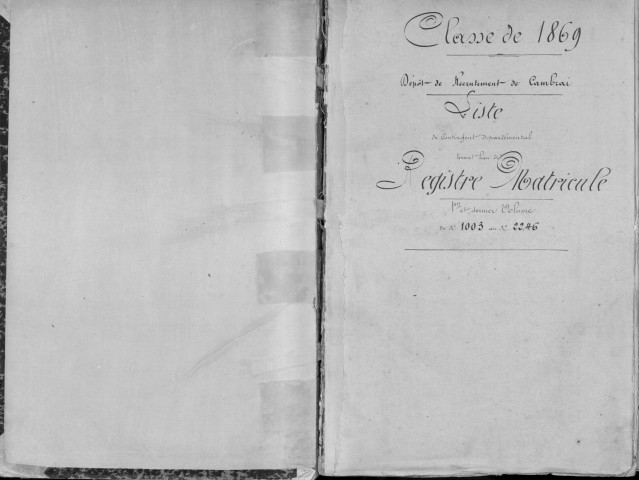 Classe de 1869
Dépôt de Recrutement de Cambrai
Liste
du Contingent Départemental
tenant lieu de
Registre Matricule
1er et dernier Volume
du N° 1003 au N° 2246